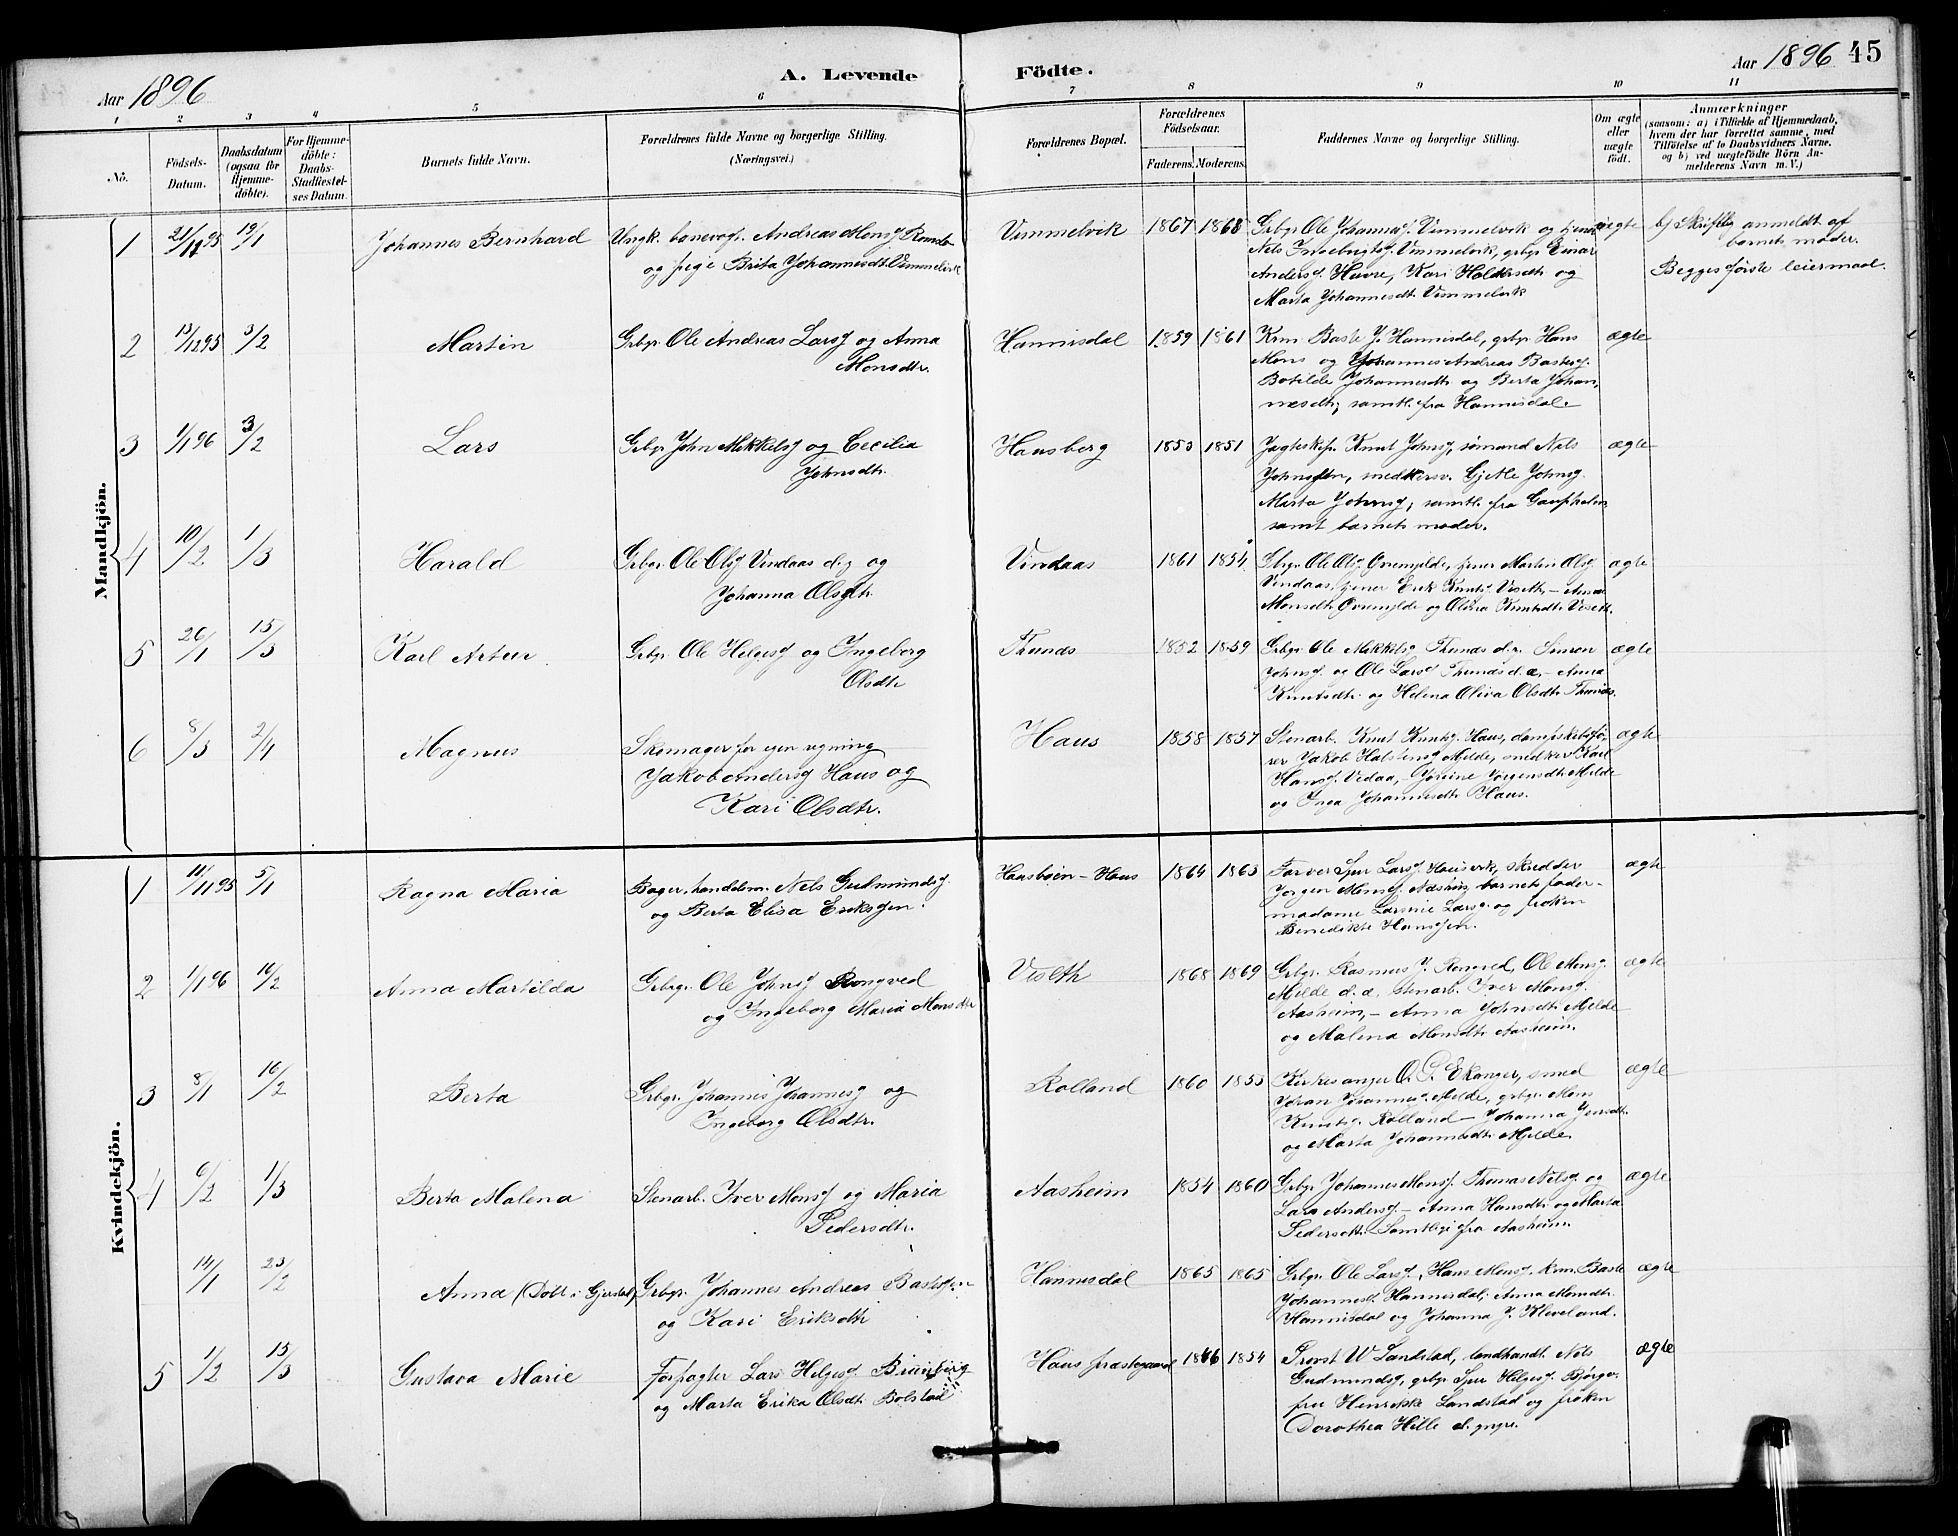 Aar 1896
A. Levende Födte.
Aar 1896 45
1 2 3 4 5 6 7 8 9 10 11
No.
Födsels-Datum.
Daabsdatum (ogsaa for Hjemmedöbte).
For Hjemmedöbte: Daabs-Stadfæstelses Datum.
Barnets fulde Navn.
Forældrenes fulde Navne og borgerlige Stilling. (Næringsvei.)
Forældrenes Bopæl.
Forældrenes Födselsaar.
Faderens. Moderens.
Faddernes Navne og borgerlige Stilling.
Om ægte eller uægte födt.
Anmærkninger
(saasom: a) i Tilfælde af Hjemmedaab, hvem der har forrettet samme, med Tilföielse af to Daabsvidners Navne, og b) ved uægtefödte Börn Anmelderens Navn m. V.)
Mandkjön.
1 21/11 95 19/1 Johannes Bernhard
Ungk. banevogt. Andreas Monsj
og pige Brita Johannesdt. Vimmelvik
Vimmelvik 1867 1868
Grbgr. Ole Johannesj. Vimmelvik og
Nels Ingebrigtsj. Vimmelvik, grbgr. Einar
Andersj. Havre, Kari Haldorsdtr og
Marta Johannesdt. Vimmelvik
uægte
b) Skriftlig anmeldt af
barnets moder.
Begges første leiermaal.
2 13/12 95 3/2 Martin
Grbgr. Ole Andreas Larsj og Anna
Monsdtr.
Hannisdal 1859 1861
Krm. Baste J. Hannisdal, grbgr. Hans
Mons og Johannes Andreas Bastesj.
Botilde Johannesdtr og Berta Johan,
nesdtr; samtl. fra Hannisdal.
ægte
3 1/1 96 3/2 Lars
Grbgr John Mikkelsj og Cecilia
Johnsdtr.
Hausberg 1853 1851
Jægteskip. Knut Johnsj, sømand Nils
Johnsjen, Gjertle Johnsj.
Marta Johnsj; samtl. fra Gaupholm,
samt barnets moder.
ægte
4 10/2 1/3 Harald
Grbgr. Ole Olsj Vindaas d.y og
Johanna Olsdtr.
Vindaas 1861 1854
Grbgr Ole Olsj Øvremjelde, tjener Martin Olsj
Vindaas, tjener Erik Knutsj Veseth, – Anna
Monsdtr Øvremjelde og Olina Knutsdtr Veseth.
ægte
5 26/1 15/3 Karl Artur
Grbgr. Ole Helgesj og Ingeborg
Olsdtr
Thunæs 1852 1859
Grbgr. Ole Mikkelsj Thunæs d.y. Simon
Johnsj og Ole Larsj Thunæs d.æ, – Anna
Knutsdtr. og Helena Oliva Olsdtr Thunæs.
ægte
6 8/3 2/4 Magnus
Skomager for egen regning
Jakob Andersj Haus og
Kari Olsdtr.
Haus 1858 1857
Stenarb. Knut Knutsj. Haus, dampskibsfø-
rer Jakob Halstensj Mjelde, snedker Karl
Hansj. Vedaa, – Jørgensdtr. Mjelde
og Inga Johannesdtr Haus.
ægte
Kvindekjön.
1 11/11 95 5/1 Ragna Maria
Bager, handelsm. Nels Gudmundsj.
og Berta Elisa Eriksjen.
Haasböen – Haus 1864 1863
Farver Sjur Larsj Hausvik, skrædder
Jørgen Monsj. Næshei, barnets fader –
madame Larsine Larsj. og frøken
Benedikte Hansjen.
ægte
2 1/1 96 16/2 Anna Martilda
Grbgr. Ole Johnsj Rongved
og Ingeborg Maria Monsdtr
Veseth 1868 1869
Grbgr. Rasmus J. Rongved, Ole Monsj.
Milde d.æ. stenarb. Iver Monsj.
Aasheim, – Anna Johnsdtr. Mjelde
og Malena Monsdtr. Aasheim.
ægte
3 8/1 16/2 Berta
Grbgr. Johannes Johannesj og
Ingeborg Olsdtr.
Rolland 1860 1853
Kirkesanger O. G. Ekanger, smed
Johan Johannesj. Mjelde, grbgr. Mons
Knutsj. Rolland – Johanna Jensdtr.
og Marta Johannesdtr. Mjelde.
ægte
4 6/2 1/3 Berta Malena
Stenarb. Iver Monsj og Maria
Pedersdtr.
Aasheim 1854 1860
Grbgr Johannes Monsj. Thomas Nelsj. og
Lars Andersj – Anna Hansdtr og Marta
Pedersdtr. Samtlige fra Aasheim.
ægte
14/1 23/2 Anna (Döbt i Gjerstad)
Grbgr. Johannes Andreas Bastesjen
og Kari Eriksdtr
Hannisdal 1865 1865
Grbgr. Ole Larsj, Hans Monsj. krm. Baste
Johannesj. Hannisdal; Anna Monsdtr.
Hannisdal og Johanna J. Kleveland.
ægte
5 1/2 15/3 Gustava Marie
Forpagter Lars Helgesj.
og Marta Erika Olsdtr. Bolstad
Haus præstegaard 1866 1854
Provst W Landstad, landhandl. Nils
Gudmundsj, grbgr Sjur Helgesj. Börge,
fru Henrikke Landstad og frøken
Dorothea Hille
ægte